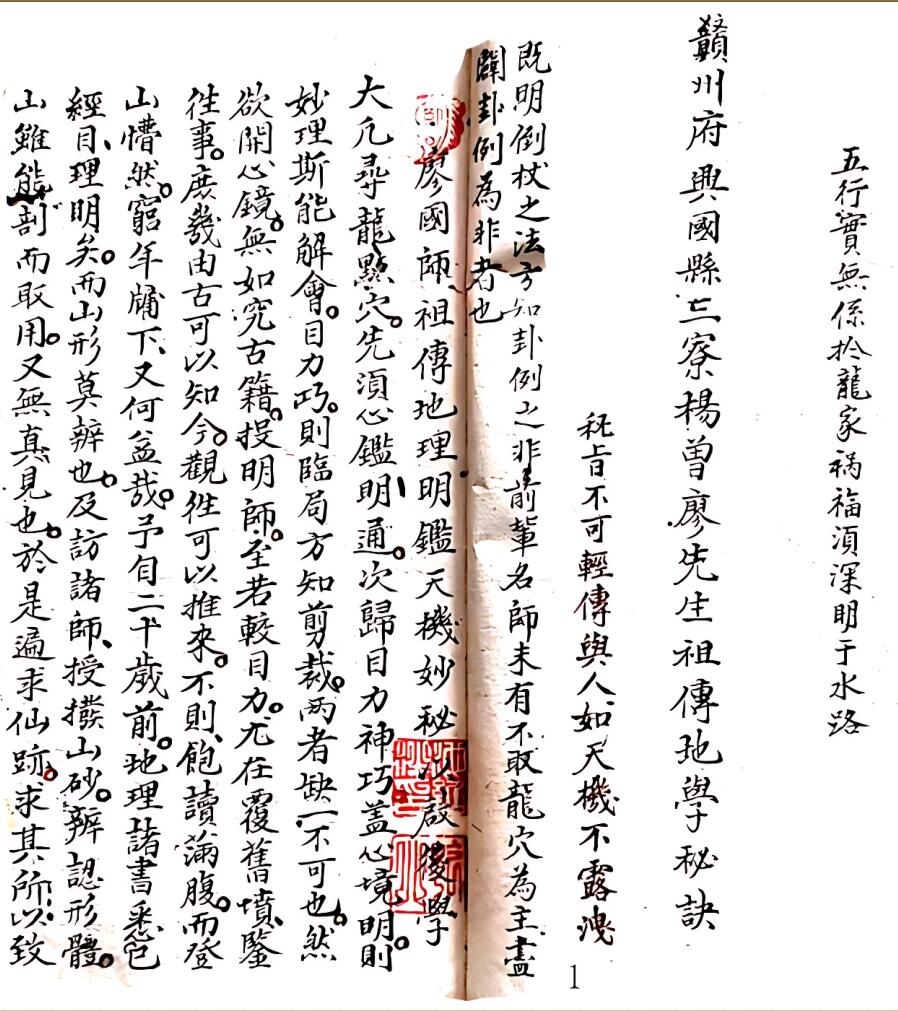 五行實無係扵龍家禍福湏深明于水路
贛州府興國縣三寮楊曾廖先生祖傳地學秘訣
秘旨不可輕傳與人如天機不露洩
既明倒杖之法方知卦例之非前輩名師未有不取龍穴為主盡
闢卦例為非者也
廖國師祖傳地理明鑑天機妙秘以啟後學
大凢尋龍點穴。先湏心鑑明通。次歸目力神巧盖心境明。則
妙理斯能解會。目力巧。則臨局方知剪裁。两者缺一不可也。然
欲開心鏡。無如究古籍。投明師。至若較目力。尤在覆舊墳、鑒
徃事。庶幾由古可以知今。觀徃可以推來。不則、飽讀滿腹。而登
山懵然。窮年牖下、又何益哉。予自二十歲前。地理諸書悉已
經目、理明矣。而山形莫辨也。及訪諸師、授撥山砂。辨認形體。
山雖能剖而取用。又無真見也。於是遍求仙跡。求其所以致
1